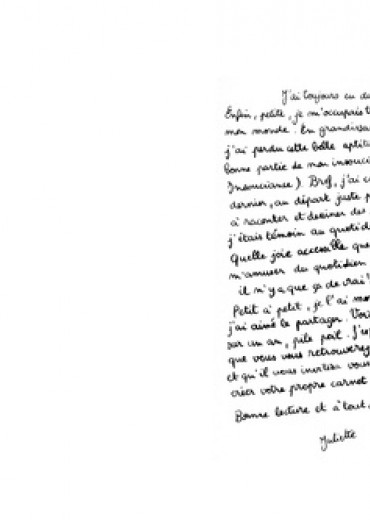 J'ai toujours eu du
Enfin, petite, je m'occupais t
mon monde. En grandissa
j'ai perdu cette belle aptit
bonne partie de mon insouci
Insouciance). Bref, j'ai c
dernier, au départ juste p
à raconter et dessiner des
j'étais témoin au quotid
Quelle joie accessible que
m'amuser du quotidien
il n'y a que ça de vrai !
Petit à petit, je l'ai mo
j'ai aimé le partager. Voi
sur un an, pile poil. J'esp
que vous vous retrouverez
et qu'il vous invitera vous
créer votre propre carnet
Bonne lecture et à tout,
Juliette